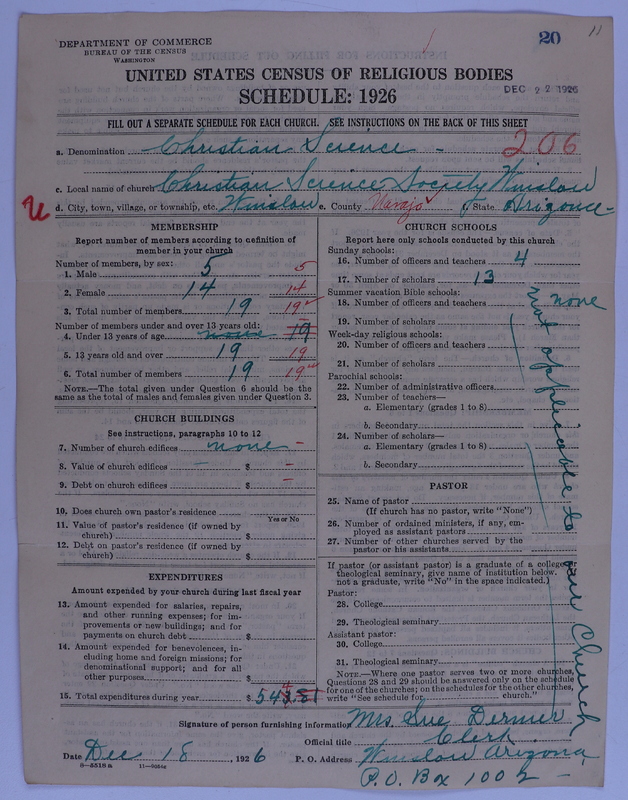 DEPARTMENT OF COMMERCE
BUREAU OF THE CENSUS
WASHINGTON
20
11
UNITED STATES CENSUS OF RELIGIOUS BODIES
SCHEDULE: 1926
DEC 22 1926
FILL OUT A SEPARATE SCHEDULE FOR EACH CHURCH. SEE INSTRUCTIONS ON THE BACK OF THIS SHEET
a. Denomination Christian Science - 206
c. Local name of church Christian Science Society Winslow
U d. City, town, village, or township, etc. Winslow e. County Navajo f. State Arizona
MEMBERSHIP
Report number of members according to definition of
member in your church
Number of members, by sex:
1. Male 5 5
2. Female 14 14
3. Total number of members 19 19
Number of members under and over 13 years old:
4. Under 13 years of age none 19
5. 13 years old and over 19 19
6. Total number of members 19 19
NOTE.—The total given under Question 6 should be
same as the total of males and females given under Question 3.
CHURCH BUILDINGS
See instructions, paragraphs 10 to 12
7. Number of church edifices none -
8. Value of church edifices - $ -
9. Debt on church edifices $ -
10. Does church own pastor's residence
Yes or No
11. Value of pastor's residence (if owned by
church) $
12. Debt on pastor's residence (if owned by
church) $
EXPENDITURES
Amount expended by your church during last fiscal year
13. Amount expended for salaries, repairs,
and other running expenses; for im-
provements or new buildings; and for
payments on church debt $
14. Amount expended for benevolences, in-
cluding home and foreign missions; for
denominational support; and for all
other purposes $
15. Total expenditures during year $ 543.81
CHURCH SCHOOLS
Report here only schools conducted by this church
Sunday schools:
16. Number of officers and teachers 4
17. Number of scholars 13
Summer vacation Bible schools:
18. Number of officers and teachers none
19. Number of scholars
Week-day religious schools:
20. Number of officers and teachers
21. Number of scholars
Parochial schools:
22. Number of administrative officers
23. Number of teachers—
a. Elementary (grades 1 to 8)
b. Secondary
24. Number of scholars—
a. Elementary (grades 1 to 8)
b. Secondary
not applicable to our Church
PASTOR
25. Name of pastor
(If church has no pastor, write "None")
26. Number of ordained ministers, if any, em-
ployed as assistant pastors
27. Number of other churches served by the
pastor or his assistants
If pastor (or assistant pastor) is a graduate of a college or
theological seminary, give name of institution below. If
not a graduate, write "No" in the space indicated.)
Pastor:
28. College
29. Theological seminary
Assistant pastor:
30. College
31. Theological seminary
NOTE.—Where one pastor serves two or more churches,
Questions 28 and 29 should be answered only on the schedule
for one of the churches; on the schedules for the other churches,
write "See schedule for church."
Signature of person furnishing information Mrs. Sue Dermer
Official title Clerk
Date Dec 18, 1926 P. O. Address Winslow Arizona
P.O. Box 1002 -
8-3518a